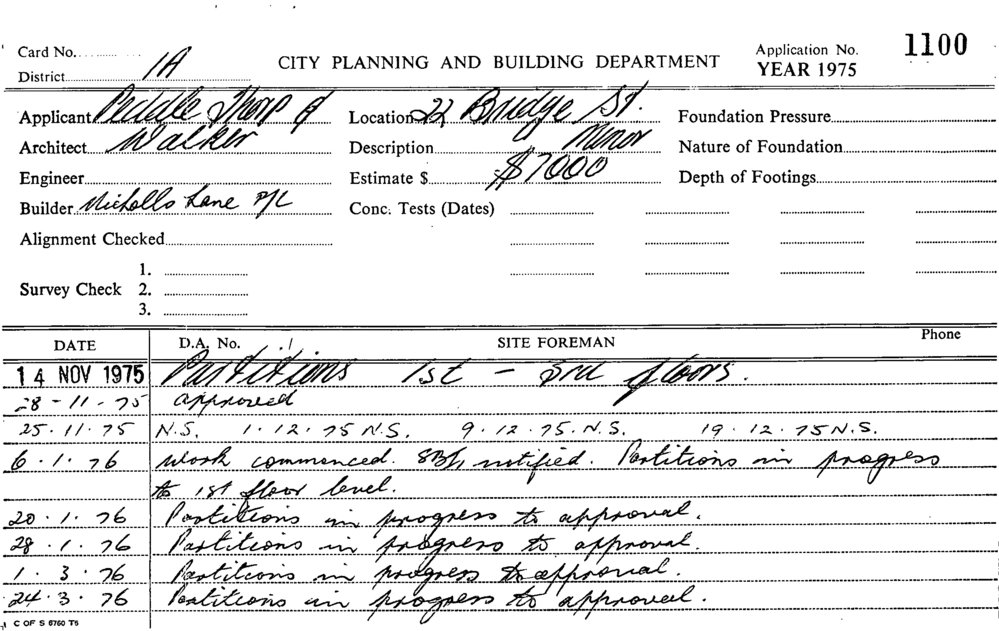 Card No.
District 1A
CITY PLANNING AND BUILDING DEPARTMENT
Application No. 1100
YEAR 1975
Applicant Peddle Thorp &
Architect Walker
Engineer
Builder Nicholls Lane P/L
Alignment Checked
Survey Check 1.
2.
3.
Location 22 Bridge St.
Description Minor
Estimate $ $7000
Conc. Tests (Dates)
Foundation Pressure
Nature of Foundation
Depth of Footings
DATE D.A. No. SITE FOREMAN Phone
14 NOV 1975 Partitions 1st - 3rd floors.
28-11-75 approved
25.11.75 N.S. 1.12.75 N.S. 9.12.75.N.S. 19.12.75 N.S.
6.1.76 Work commenced. notified. Partitions in progress
to 1st floor level.
20.1.76 Partitions in progress to approval.
28.1.76 Partitions in progress to approval.
1.3.76 Partitions in progress to approval.
24.3.76 Partitions in progress to approval.
C OF S 6760 T5